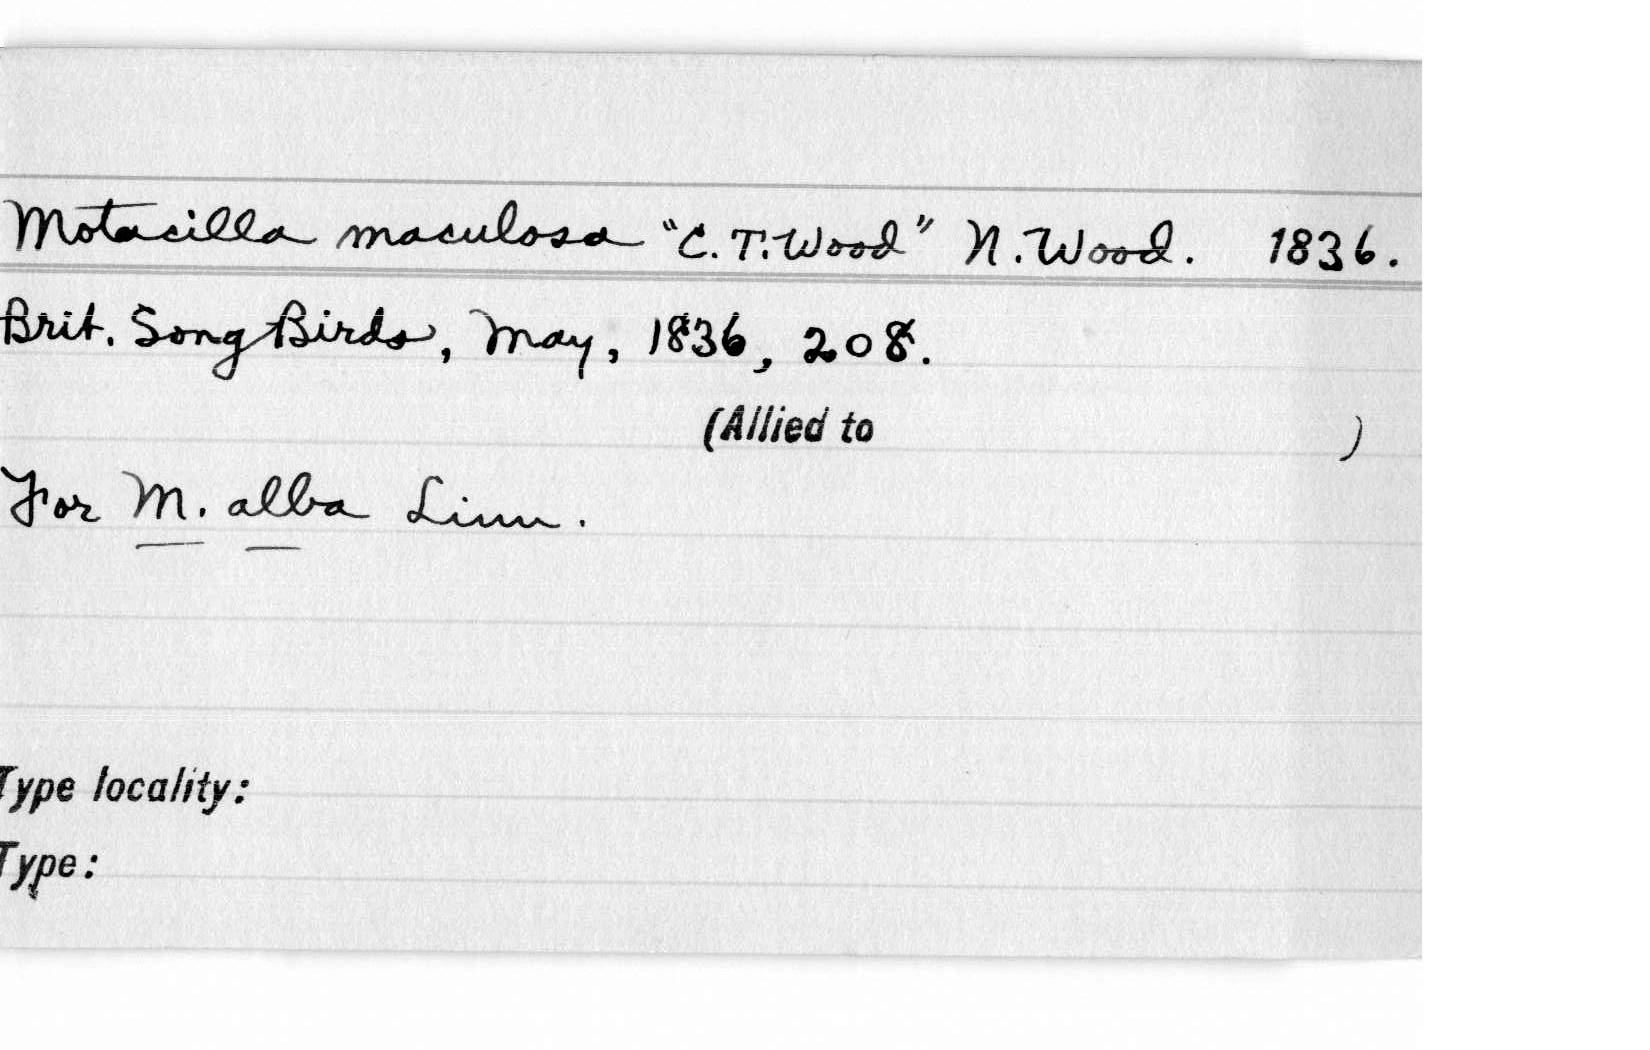 Motacilla maculosa "C. T. Wood" N. Wood. 1836.
Brit. Song Birds, May, 1836, 208.
(Allied to )
For M. alba Linn.
Type locality:
Type: